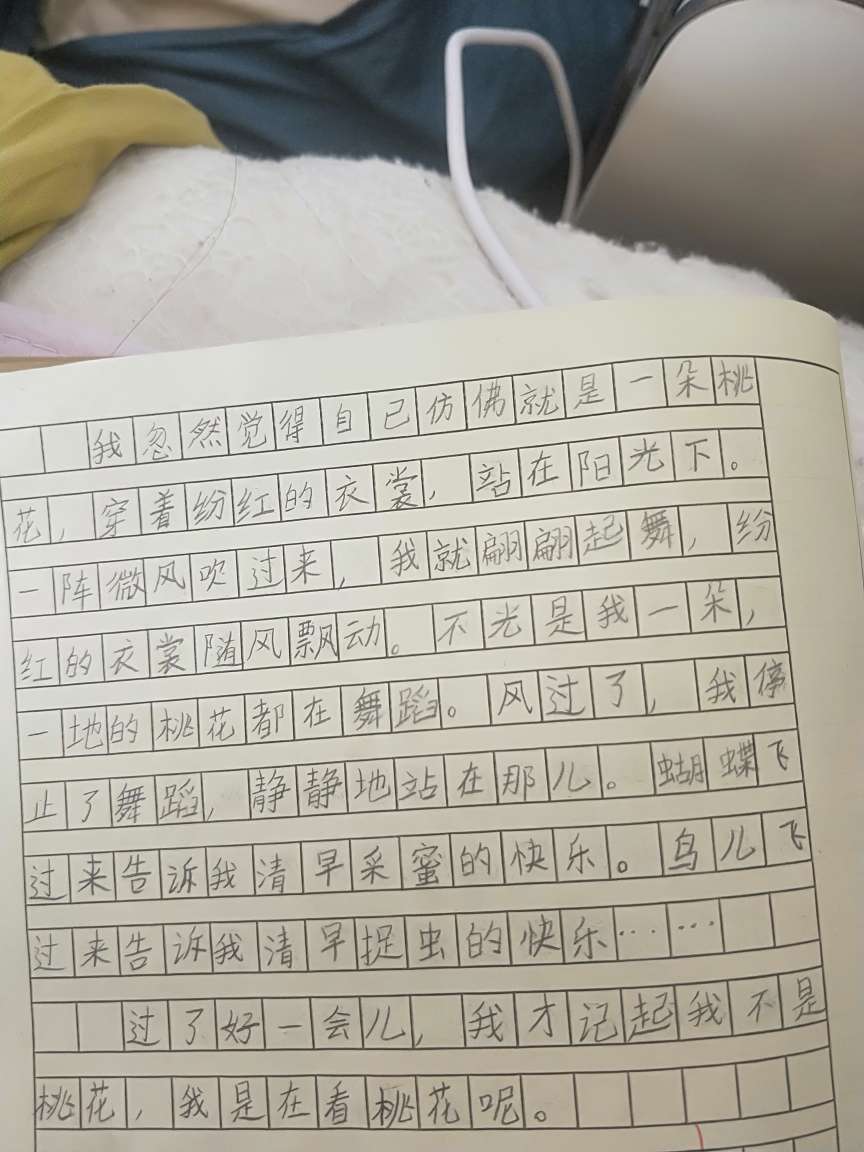 我忽然觉得自己仿佛就是一朵桃
花，穿着纷红的衣裳，站在阳光下。
一阵微风吹过来，我就翩翩起舞，纷
红的衣裳随风飘动。不光是我一朵，
一地的桃花都在舞蹈。风过了，我停
止了舞蹈，静静地站在那儿。蝴蝶飞
过来告诉我清早采蜜的快乐。鸟儿飞
过来告诉我清早捉虫的快乐……
过了好一会儿，我才记起我不是
桃花，我是在看桃花呢。